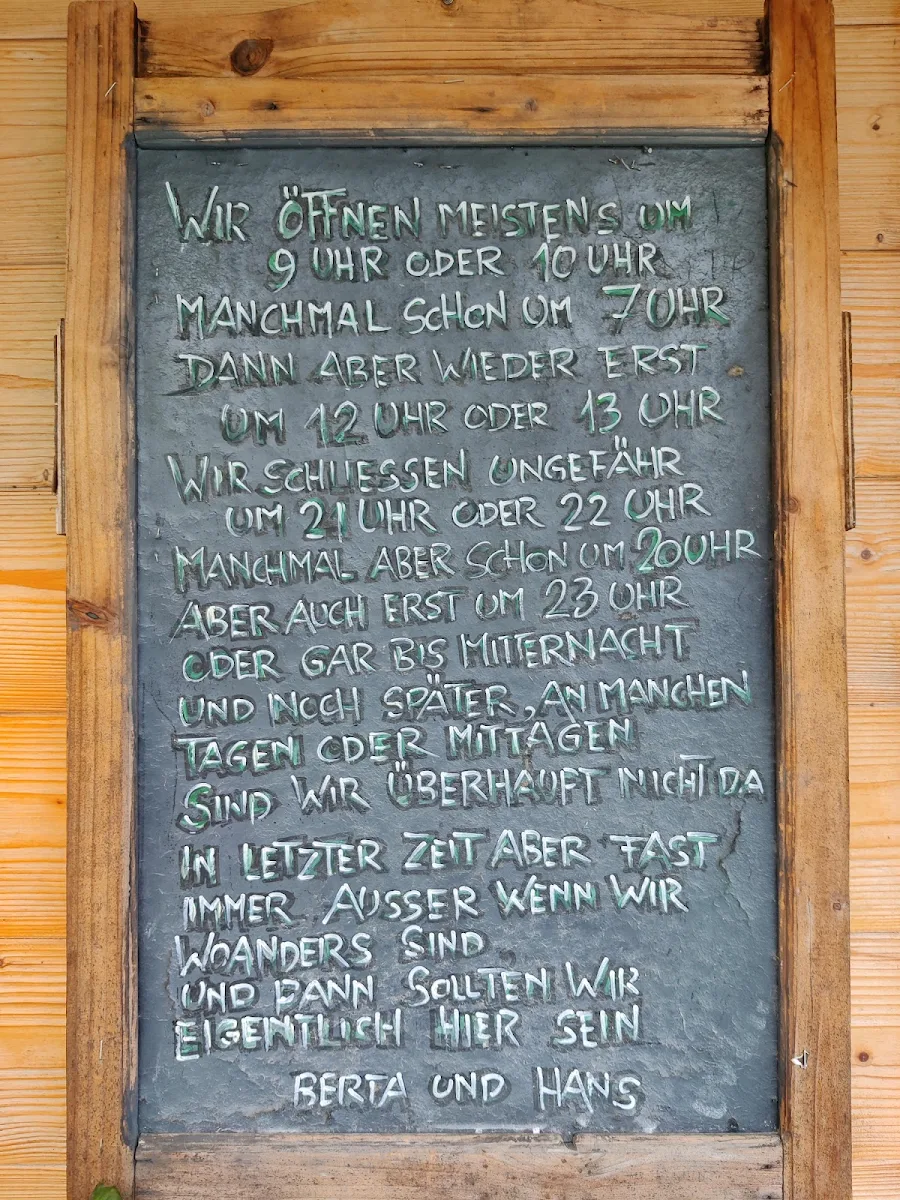 WIR ÖFFNEN MEISTENS UM
9 UHR ODER 10 UHR
MANCHMAL SCHON UM 7 UHR
DANN ABER WIEDER ERST
UM 12 UHR ODER 13 UHR
WIR SCHLIESSEN UNGEFÄHR
UM 21 UHR ODER 22 UHR
MANCHMAL ABER SCHON UM 20 UHR
ABER AUCH ERST UM 23 UHR
ODER GAR BIS MITTERNACHT
UND NOCH SPÄTER, AN MANCHEN
TAGEN ODER MITTÄGEN
SIND WIR ÜBERHAUPT NICHT DA
IN LETZTER ZEIT ABER FAST
IMMER AUSSER WENN WIR
WOANDERS SIND
UND DANN SOLLTEN WIR
EIGENTLICH HIER SEIN
BERTA UND HANS